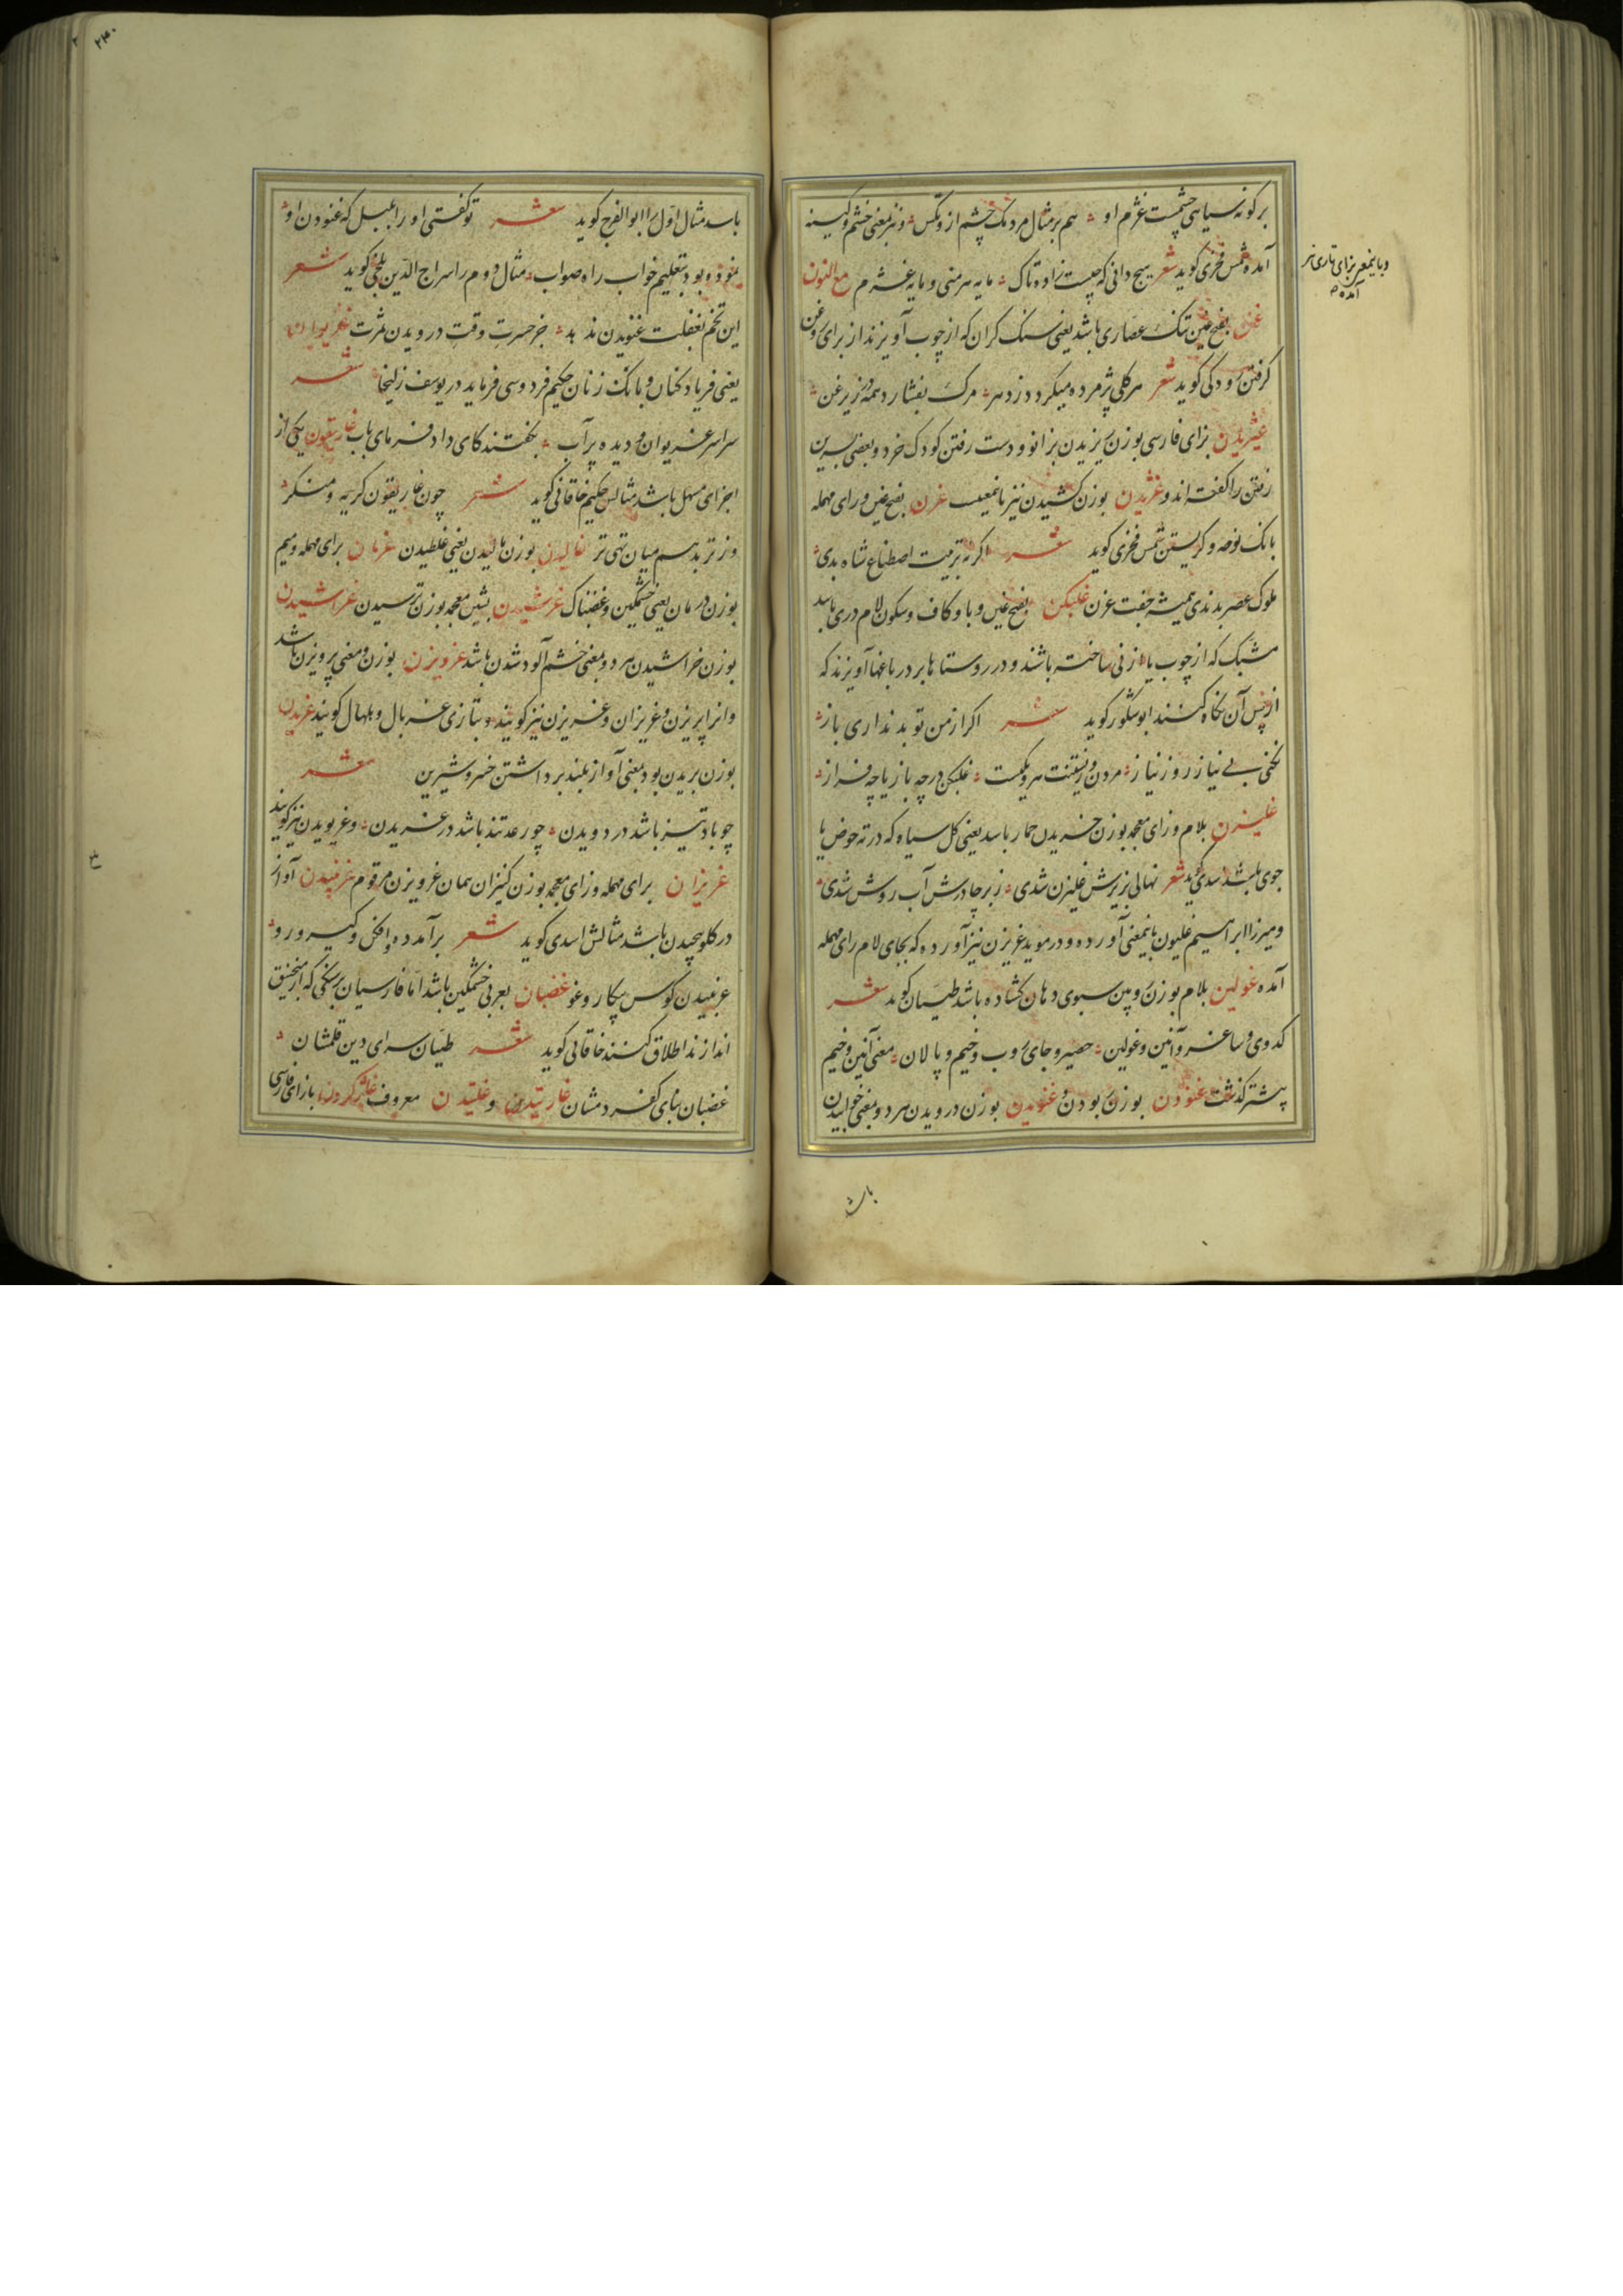 بر گونه سیاهی چشمست غژم او ؞ هم بر مثال مردمک چشم از و تکس ؞ و نیز بمعنی خشم و کینه
آمده شمس فخری گوید شعر هیچ دانی که چیست زاده تاک ؞ مایه هر منی و مایه غژم مع النون
غن بفتح غین تنک عصاری باشد یعنی سنک کران که از چوب آویزند از برای روغن
کرفتن رودکی گوید شعر هر کلی پژمرده میکردد ز دهر ؞ مرک بفشارد همه در زیر غن ؞
غیژیدن بزای فارسی بوزن ریزیدن بزانو و دست رفتن کودک خرد و بعضی بسرین
رفتن را کفته اند و غژیدن بوزن کشیدن نیز باینمعنیست غرن بفتح غین و رای مهمله
بانک نوحه و کریستن شمس فخری گوید شعر اگر نه تربیت اصطناع شاه بدی ؞
ملوک عصر بدندی همیشه جفت غرن غلبکن بفتح غین و با و کاف و سکون لام دری باشد
مشبک که از چوب یا از نی ساخته باشند و در روستاها بر در باغها آویزند که
از پس آن نکاه کنند ابو شکور گوید شعر اکر از من تو بد نداری باز ؞
نکنی بی نیاز روز نیاز ؞ مردن و زیستنت هر دو یکیست ؞ غلبکن در چه باز یا چه فراز ؞
غلیزن بلام و زای معجمه بوزن خریدن حمار باشد یعنی کل سیاه که در ته حوض یا
جوی باشد اسدی گوید شعر نهالی بزیرش غلیزن شدی ؞ زبر چادرش آب روشن شدی ؞
و میرزا ابراهیم غلیون باینمعنی آورده و در موید غریزن نیز آورده که بجای لام رای مهمله
آمده غولین بلام بوزن روبین سبوی دهان کشاده باشد طیان گوید شعر
کدوی و ساغر و آنین و غولین ؞ حصیر و جای روب و خیم و پالان ؞ معنی آنین و خیم
پیشتر کذشت غنودن بوزن بودن و غنویدن بوزن درویدن هر دو بمعنی خوابیدن
و باینمعنی بزای تازی نیز
آمده
باشد
باشد مثال اول را ابو الفرج گوید شعر تو کفتی او را عمیل که غنودن او ؞
بغنوده بود بتعلیم خواب راه صواب ؞ مثال دوم را سراج الدین بلخی گوید شعر
این تخم بغفلت غنویدن ندهد ؞ جز حسرت وقت درویدن ثمرت غریوان
یعنی فریاد کنان و بانک زنان حکیم فردوسی فرماید در یوسف زلیخا شعر
سراسر غریوان و دیده پر آب ؞ بکفتند کای داد فرمای باب غاریقون یکی از
اجزای مسهل باشد مثالش حکیم خاقانی گوید شعر چون غاریقون کریه و منکر ؞
وز تربد هم میان تهی تر غالیدن بوزن بالیدن یعنی غلطیدن غرمان برای مهمله و میم
بوزن درمان یعنی خشمکین و غضبناک غرشیدن بشین معجمه بوزن ترسیدن غراشیدن
بوزن خراشیدن هر دو بمعنی خشم آلود شدن باشد غرویزن بوزن و معنی پرویزن باشد
و انرا پریزن و غریزان و غریزن نیز گویند و بتازی غربال و بلهال گویند غریدن
بوزن بریدن بود بمعنی آواز بلند برداشتن خسرو شیرین شعر
چو باد تیز باشد در دویدن ؞ چو رعد تند باشد در غریدن ؞ و غریویدن نیز گویند
غریزان برای مهمله و زای معجمه بوزن کنیزان همان غرویزن مرقوم غرنبیدن آواز
در کلو پیچیدن باشد مثالش اسدی گوید شعر برآمد ده و افکن و کیر و رو ؞
غرنبیدن کوس پیکار و غو غضبان بعربی خشمکین باشد اما فارسیان بر سنکی که از منجنیق
اندازند اطلاق کنند خاقانی گوید شعر طیان سرای دین قلمشان ؞
غضبان بنای کفر دمشان غارتیدن و غلتیدن معروف غاژ کردن با زای فارسی